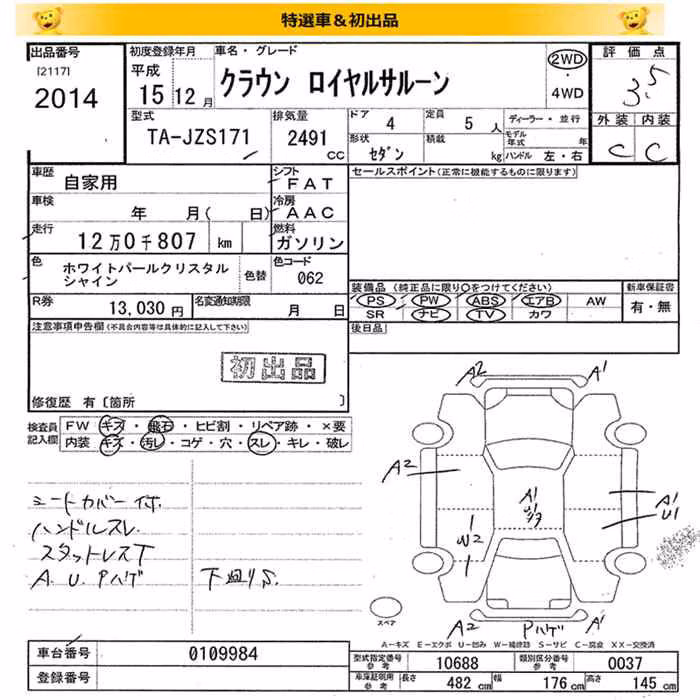 特選車&初出品
出品番号
[2117]
2014
初度登録年月
平成
15年12月
車名・グレード
クラウン ロイヤルサルーン
2WD
・
4WD
評価点
3.5
外装 内装
C C
型式
TA-JZS171
排気量
2491
CC
ドア 4
定員 5 人
形状 セダン
積載 kg
ディーラー・並行
モデル年式 年
ハンドル 左・右
車歴 自家用
シフト FAT
車検 年 月( 日)
冷房 AAC
走行 12万0千807 km
燃料 ガソリン
色 ホワイトパールクリスタルシャイン
色替
色コード 062
R券 13,030円
名変通知期限 月 日
セールスポイント(正常に機能するものに限ります)
装備品 (純正品に限り○をつけてください)
PS PW ABS エアB AW
SR ナビ TV カワ
新車保証書
有・無
後日品
注意事項申告欄(不具合内容等は具体的に記入して下さい)
初出品
修復歴 有〔箇所 〕
検査員記入欄
FW キズ・飛石・ヒビ割・リペア跡・×要
内装 キズ・汚レ・コゲ・穴・スレ・キレ・破レ
シートカバー付.
ハンドルスレ
スタットレスT
A. U. Pハゲ
下廻りS.
A2 A1
A2
A1
A1
U1
W2
A2 Pハゲ A1
スペア
A-キズ E-エクボ U-凹み W-補修跡 S-サビ C-腐食 XX-交換済
車台番号 0109984
登録番号
型式指定番号参考 10688
類別区分番号参考 0037
車庫証明用参考
長さ 482 cm
幅 176 cm
高さ 145 cm